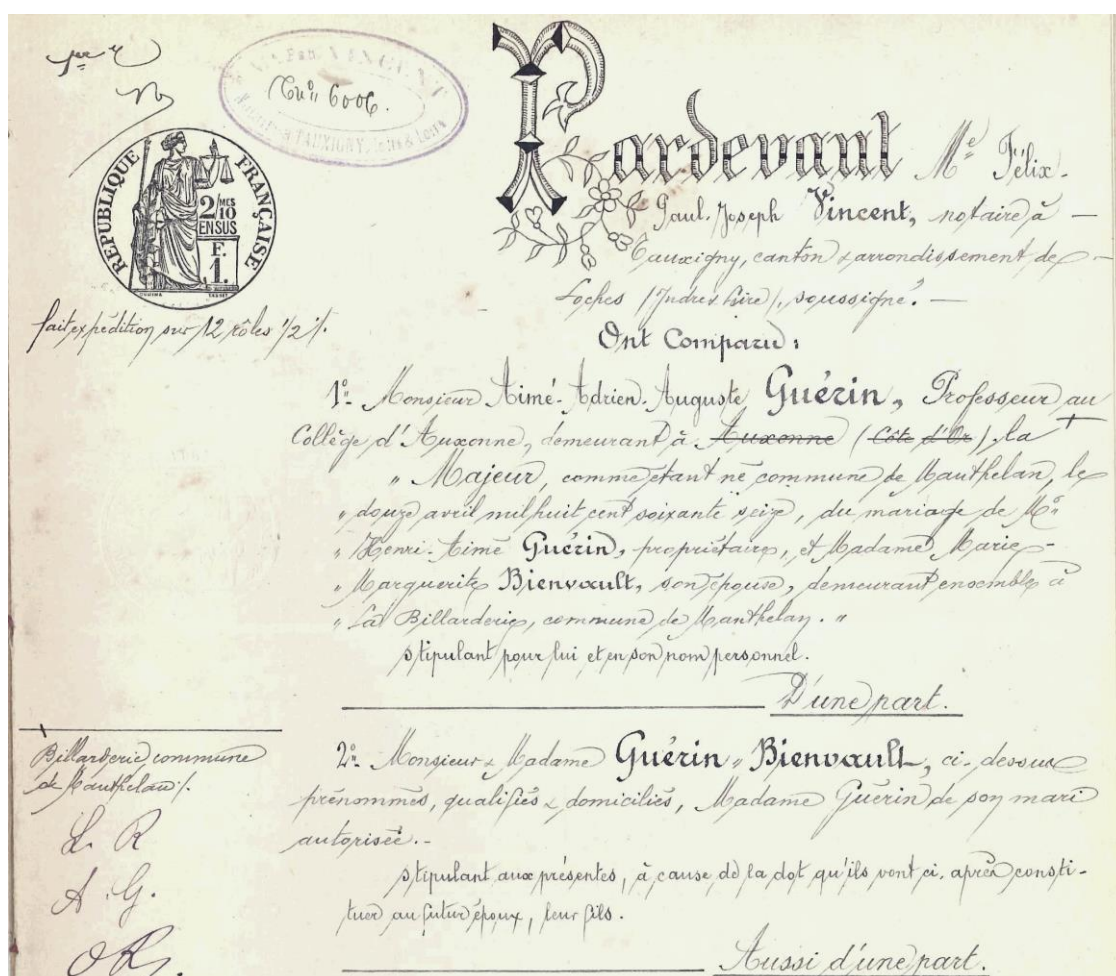 N° 6006.
RÉPUBLIQUE FRANÇAISE
2/10 MES
EN SUS
F.
1.
fait expédition sur 12 rôles 1/2 ./.
Pardevant Me Félix-
Paul-Joseph Vincent, notaire à
Tauxigny, canton & arrondissement de
Loches (Indre & Loire), soussigné.
Ont Comparu:
1°- Monsieur Aimé-Adrien-Auguste Guérin, Professeur au
Collège d'Auxonne, demeurant à Auxonne (Côte d'Or), la
" Majeur, comme étant né commune de Manthelan, le
" douze avril mil huit cent soixante seize, du mariage de Mr
" Henri-Aimé Guérin, propriétaire, et Madame Marie-
" Marguerite Bienvault, son épouse, demeurant ensemble à
" La Billarderie, commune de Manthelan. "
stipulant pour lui et en son nom personnel.
D'une part.
Billarderie commune
de Manthelan ./.
L. R
A. G.
2°- Monsieur & Madame Guérin-Bienvault, ci-dessus
prénommés, qualifiés & domiciliés, Madame Guérin de son mari
autorisée.-
stipulant aux présentes, à cause de la dot qu'ils vont ci-après consti-
tuer au futur époux, leur fils.
Aussi d'une part.